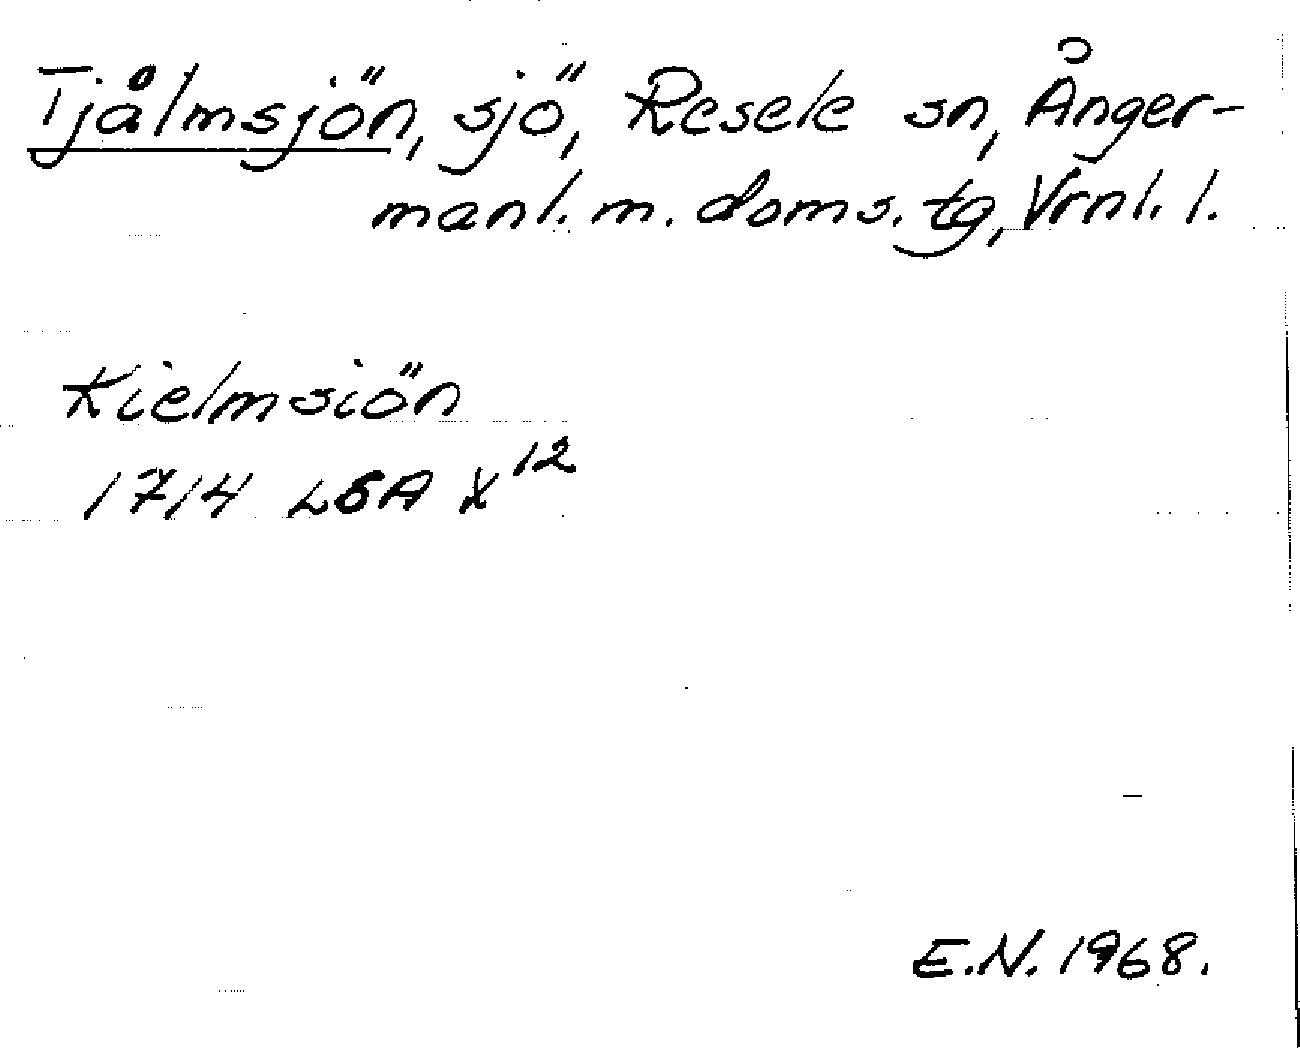 Tjålmsjön, sjö, Resele sn, Ånger-
manl. m. doms. tg, Vrnl. l.
Kielmsiön
1714 LSA X¹²
E.N. 1968.